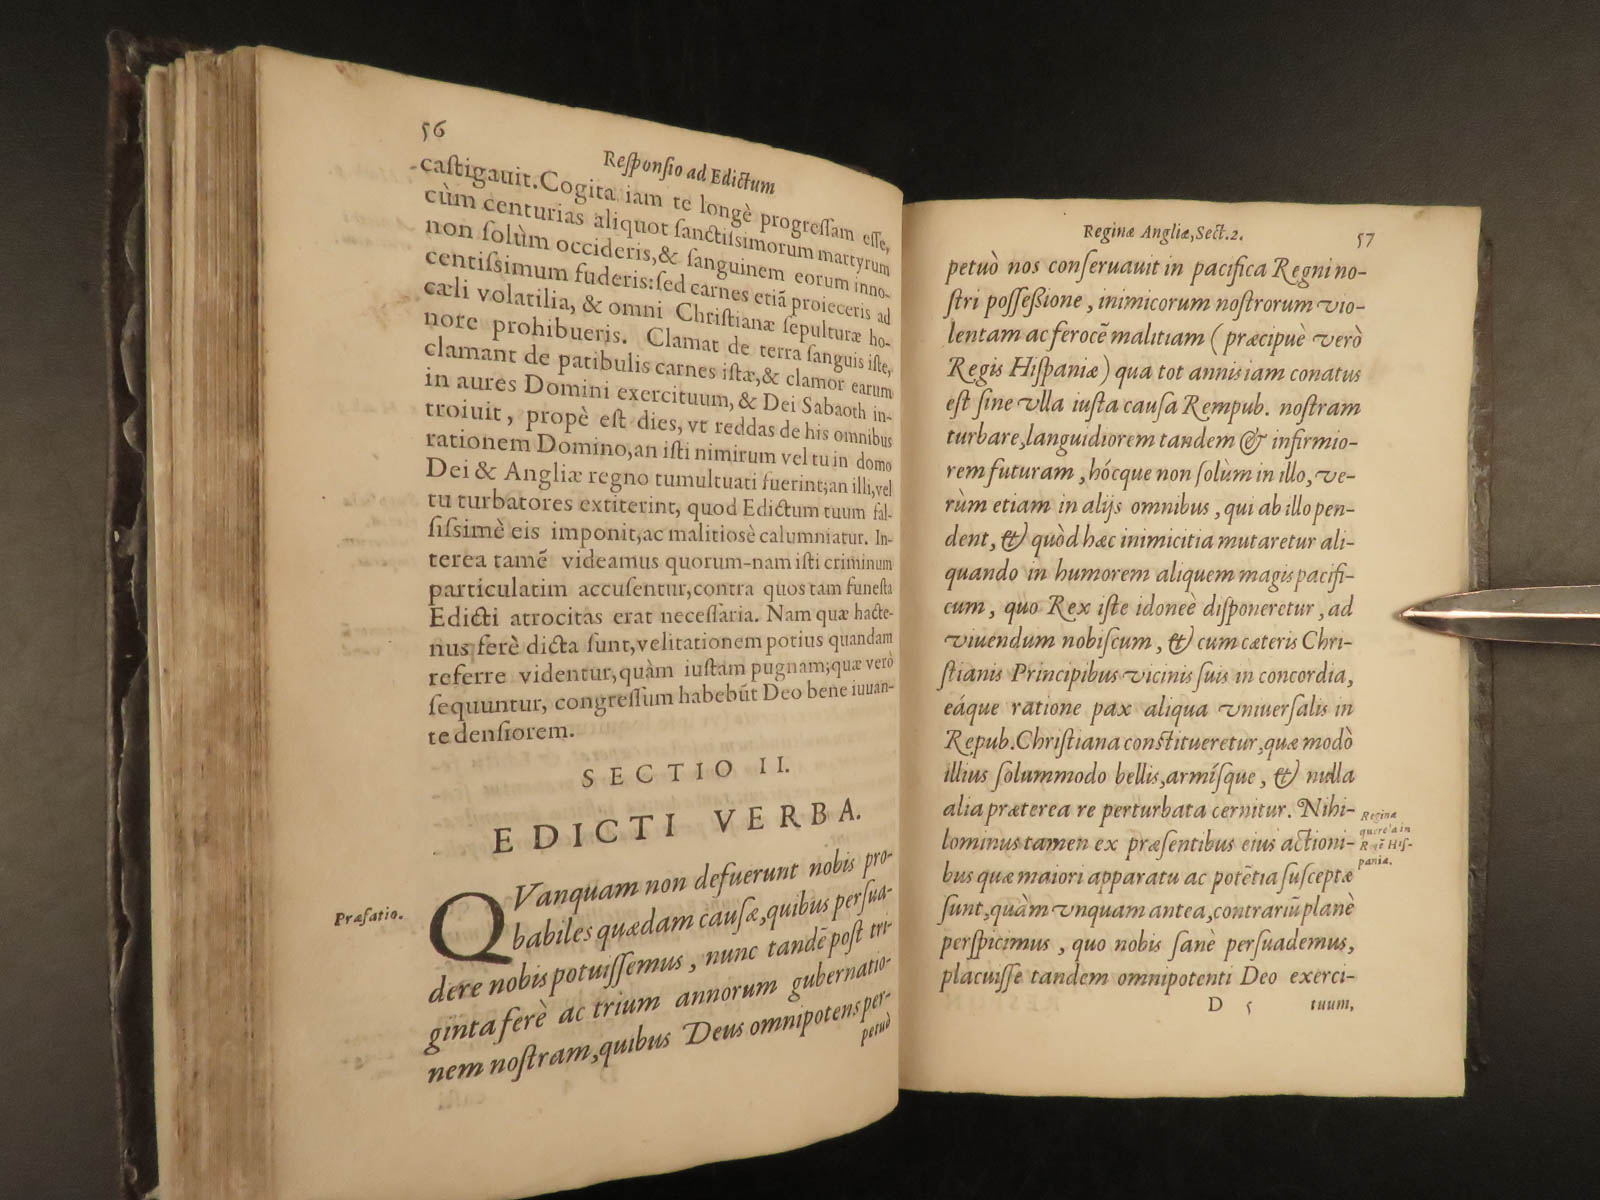 56
Reſponſio ad Edictum
caſtigauit. Cogita iam te longè progreſſam eſſe,
cùm centurias aliquot ſanctiſsimorum martyrum
non ſolùm occideris, & ſanguinem eorum inno-
centiſsimum fuderis: ſed carnes etiā proieceris ad
cæli volatilia, & omni Chriſtianæ ſepulturæ ho-
nore prohibueris. Clamat de terra ſanguis iſte,
clamant de patibulis carnes iſtæ, & clamor earum
in aures Domini exercituum, & Dei Sabaoth in-
troiuit, propè eſt dies, vt reddas de his omnibus
rationem Domino, an iſti nimirum vel tu in domo
Dei & Angliæ regno tumultuati fuerint; an illi, vel
tu turbatores extiterint, quod Edictum tuum fal-
ſiſsimè eis imponit, ac malitiosè calumniatur. In-
terea tamē videamus quorum-nam iſti criminum
particulatim accuſentur, contra quos tam funeſta
Edicti atrocitas erat neceſſaria. Nam quæ hacte-
nus ferè dicta ſunt, velitationem potius quandam
referre videntur, quàm iuſtam pugnam; quæ verò
ſequuntur, congreſſum habebūt Deo bene iuuan-
te denſiorem.
SECTIO II.
EDICTI VERBA.
Præfatio.
QVanquam non defuerunt nobis pro-
babiles quædam cauſæ, quibus perſua-
dere nobis potuiſſemus, nunc tandē poſt tri-
ginta ferè ac trium annorum gubernatio-
nem noſtram, quibus Deus omnipotens per-
petuò
Reginæ Angliæ, Sect. 2.
57
petuò nos conſeruauit in pacifica Regni no-
ſtri poſſeßione, inimicorum noſtrorum vio-
lentam ac ferocē malitiam (præcipuè verò
Regis Hiſpaniæ) qua tot annis iam conatus
eſt ſine vlla iuſta cauſa Rempub. noſtram
turbare, languidiorem tandem & infirmio-
rem futuram, hócque non ſolùm in illo, ve-
rùm etiam in alijs omnibus, qui ab illo pen-
dent, & quòd hæc inimicitia mutaretur ali-
quando in humorem aliquem magis pacifi-
cum, quo Rex iſte idoneè diſponeretur, ad
viuendum nobiſcum, & cum cæteris Chri-
ſtianis Principibus vicinis ſuis in concordia,
eáque ratione pax aliqua vniuerſalis in
Repub. Chriſtiana conſtitueretur, quæ modò
illius ſolummodo bellis, armíſque, & nulla
alia præterea re perturbata cernitur. Nihi-
lominus tamen ex præſentibus eius actioni-
bus quæ maiori apparatu ac potētia ſuſceptæ
ſunt, quàm vnquam antea, contrariū planè
perſpicimus, quo nobis ſanè perſuademus,
placuiſſe tandem omnipotenti Deo exerci-
Reginæ
querela in
Regē Hiſ-
paniæ.
D 5
tuum,